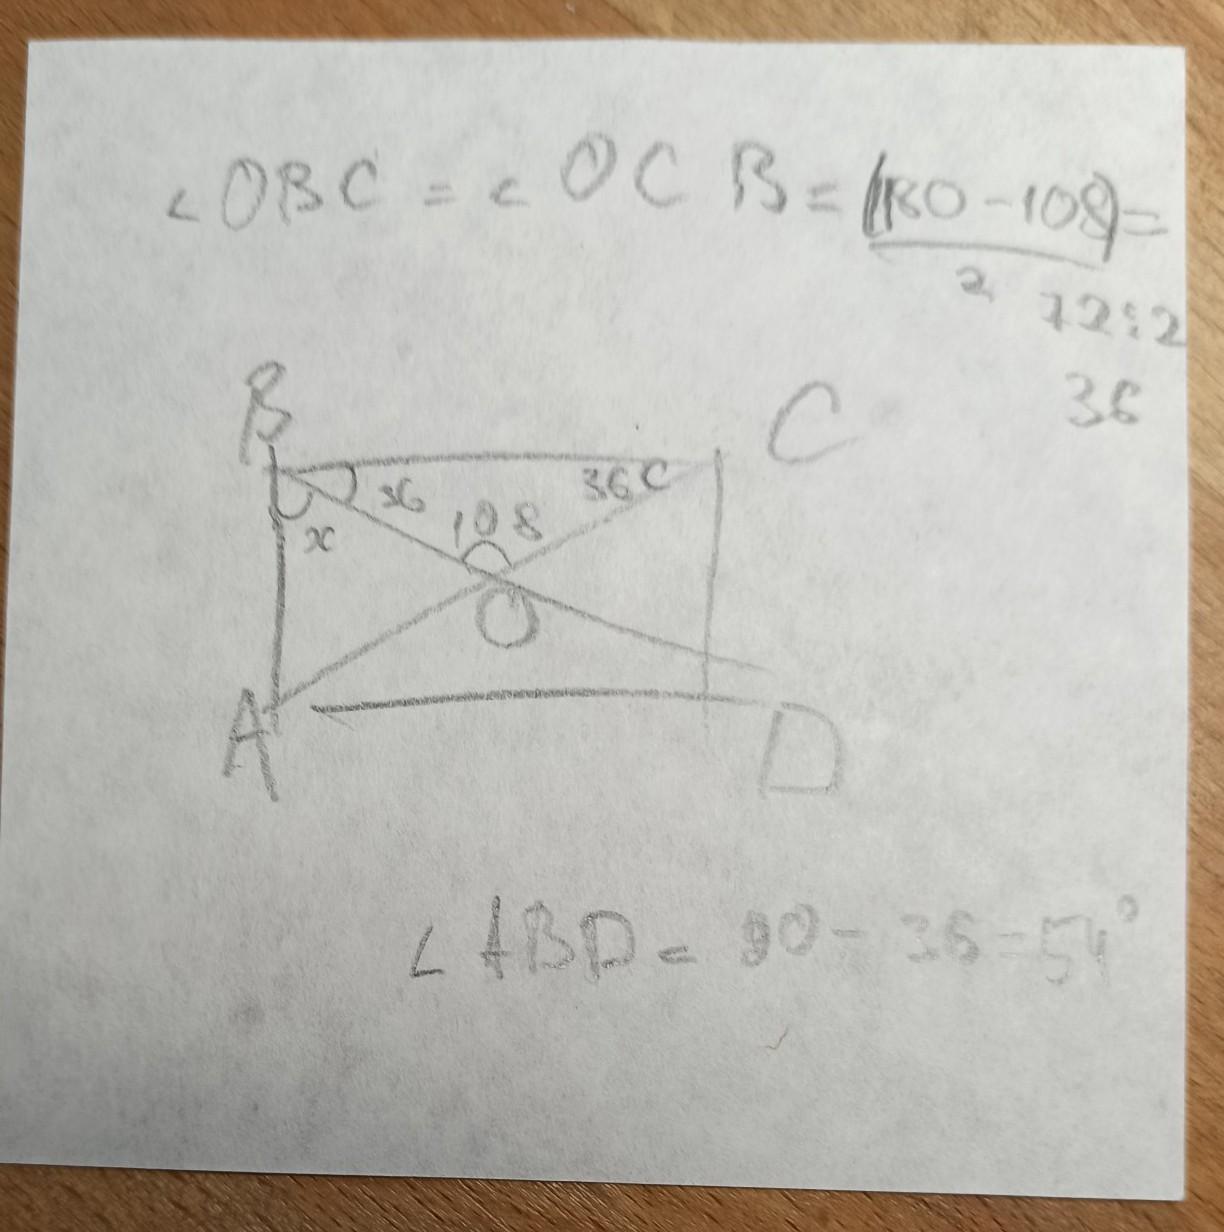 ∠OBC = ∠OCB = (180-108) =
2
72:2
36
B
C
36
36C
108
x
O
A
D
∠ABD = 90-36=54°